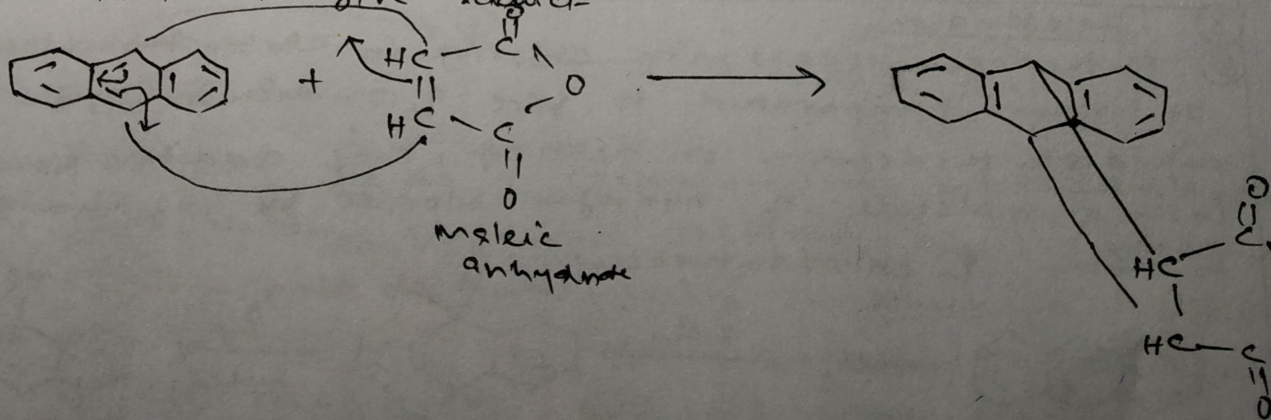 O
HC — C
+ || O
HC C
||
O
maleic
anhydride
O
||
HC — C
|
HC — C
||
O